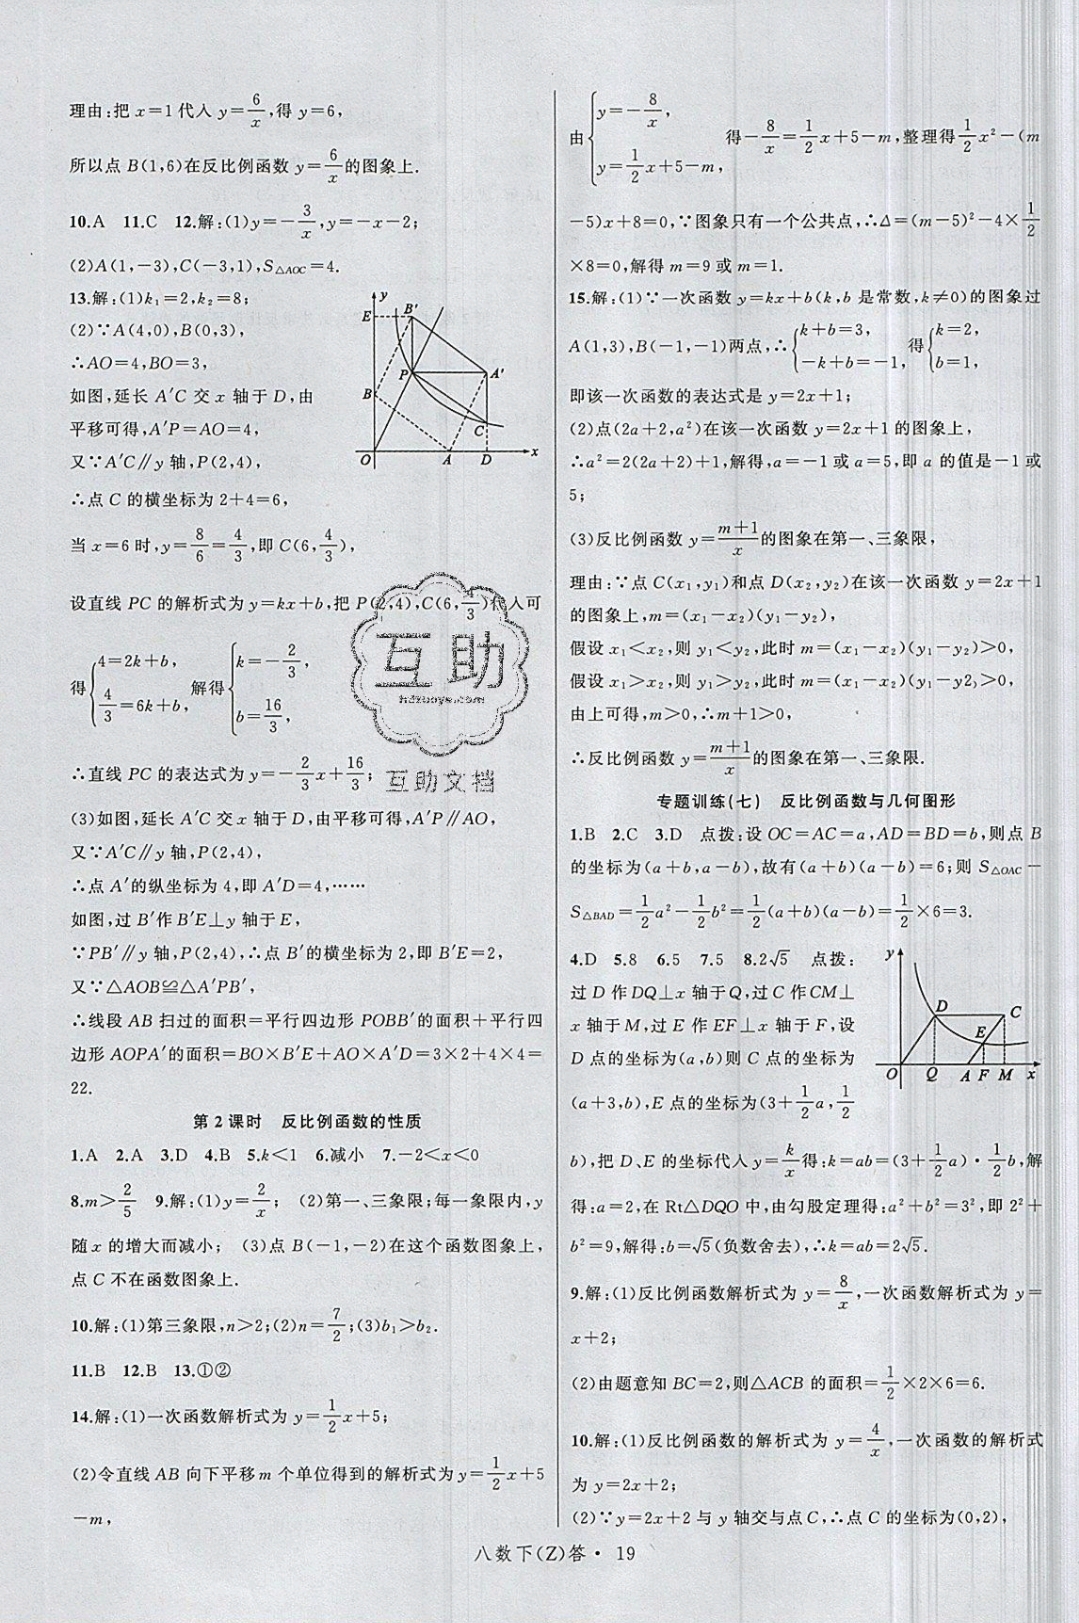 理由:把 x=1 代入 y=6/x,得 y=6,
所以点 B(1,6)在反比例函数 y=6/x的图象上.
10.A 11.C 12.解:(1)y=-3/x,y=-x-2;
(2)A(1,-3),C(-3,1),S△AOC=4.
13.解:(1)k₁=2,k₂=8;
(2)∵A(4,0),B(0,3),
∴AO=4,BO=3,
如图,延长 A′C 交 x 轴于 D,由
平移可得,A′P=AO=4,
又∵A′C∥y 轴,P(2,4),
∴点 C 的横坐标为 2+4=6,
当 x=6 时,y=8/6=4/3,即 C(6,4/3),
设直线 PC 的解析式为 y=kx+b,把 P(2,4),C(6,4/3)代入可
得{4=2k+b, 4/3=6k+b, 解得{k=-2/3, b=16/3,
∴直线 PC 的表达式为 y=-2/3x+16/3;
(3)如图,延长 A′C 交 x 轴于 D,由平移可得,A′P∥AO,
又∵A′C∥y 轴,P(2,4),
∴点 A′的纵坐标为 4,即 A′D=4,……
如图,过 B′作 B′E⊥y 轴于 E,
∵PB′∥y 轴,P(2,4),∴点 B′的横坐标为 2,即 B′E=2,
又∵△AOB≌△A′PB′,
∴线段 AB 扫过的面积=平行四边形 POBB′的面积+平行四
边形 AOPA′的面积=BO×B′E+AO×A′D=3×2+4×4=
22.
y
E
B′
P
A′
B
C
O
A
D
x
第 2 课时 反比例函数的性质
1.A 2.A 3.D 4.B 5.k<1 6.减小 7.-2<x<0
8.m>2/5 9.解:(1)y=2/x; (2)第一、三象限;每一象限内,y
随 x 的增大而减小; (3)点 B(-1,-2)在这个函数图象上,
点 C 不在函数图象上.
10.解:(1)第三象限,n>2;(2)n=7/2;(3)b₁>b₂.
11.B 12.B 13.①②
14.解:(1)一次函数解析式为 y=1/2x+5;
(2)令直线 AB 向下平移 m 个单位得到的解析式为 y=1/2x+5
-m,
由{y=-8/x, y=1/2x+5-m, 得-8/x=1/2x+5-m,整理得1/2x²-(m
-5)x+8=0,∵图象只有一个公共点,∴Δ=(m-5)²-4×1/2
×8=0,解得 m=9 或 m=1.
15.解:(1)∵一次函数 y=kx+b(k,b 是常数,k≠0)的图象过
A(1,3),B(-1,-1)两点,∴{k+b=3, -k+b=-1, 得{k=2, b=1,
即该一次函数的表达式是 y=2x+1;
(2)点(2a+2,a²)在该一次函数 y=2x+1 的图象上,
∴a²=2(2a+2)+1,解得,a=-1 或 a=5,即 a 的值是-1 或
5;
(3)反比例函数 y=m+1/x的图象在第一、三象限,
理由:∵点 C(x₁,y₁)和点 D(x₂,y₂)在该一次函数 y=2x+1
的图象上,m=(x₁-x₂)(y₁-y₂),
假设 x₁<x₂,则 y₁<y₂,此时 m=(x₁-x₂)(y₁-y₂)>0,
假设 x₁>x₂,则 y₁>y₂,此时 m=(x₁-x₂)(y₁-y2)>0,
由上可得,m>0,∴m+1>0,
∴反比例函数 y=m+1/x的图象在第一、三象限.
专题训练(七) 反比例函数与几何图形
1.B 2.C 3.D 点拨:设 OC=AC=a,AD=BD=b,则点 B
的坐标为(a+b,a-b),故有(a+b)(a-b)=6;则 S△OAC-
S△BAD=1/2a²-1/2b²=1/2(a+b)(a-b)=1/2×6=3.
4.D 5.8 6.5 7.5 8.2√5 点拨:
过 D 作 DQ⊥x 轴于Q,过 C 作CM⊥
x 轴于 M,过 E 作 EF⊥x 轴于 F,设
D 点的坐标为(a,b)则 C 点的坐标为
(a+3,b),E 点的坐标为(3+1/2a,1/2
b),把 D、E 的坐标代入 y=k/x得:k=ab=(3+1/2a)·1/2b,解
得:a=2,在 Rt△DQO 中,由勾股定理得:a²+b²=3²,即 2²+
b²=9,解得:b=√5(负数舍去),∴k=ab=2√5.
y
D
C
E
O
Q
A
F
M
x
9.解:(1)反比例函数解析式为 y=8/x,一次函数解析式为 y=
x+2;
(2)由题意知 BC=2,则△ACB 的面积=1/2×2×6=6.
10.解:(1)反比例函数的解析式为 y=4/x,一次函数的解析式
为 y=2x+2;
(2)∵y=2x+2 与 y 轴交与点 C,∴点 C 的坐标为(0,2),
互助
hdzuoye.com
互助文档
八数下(Z)答·19